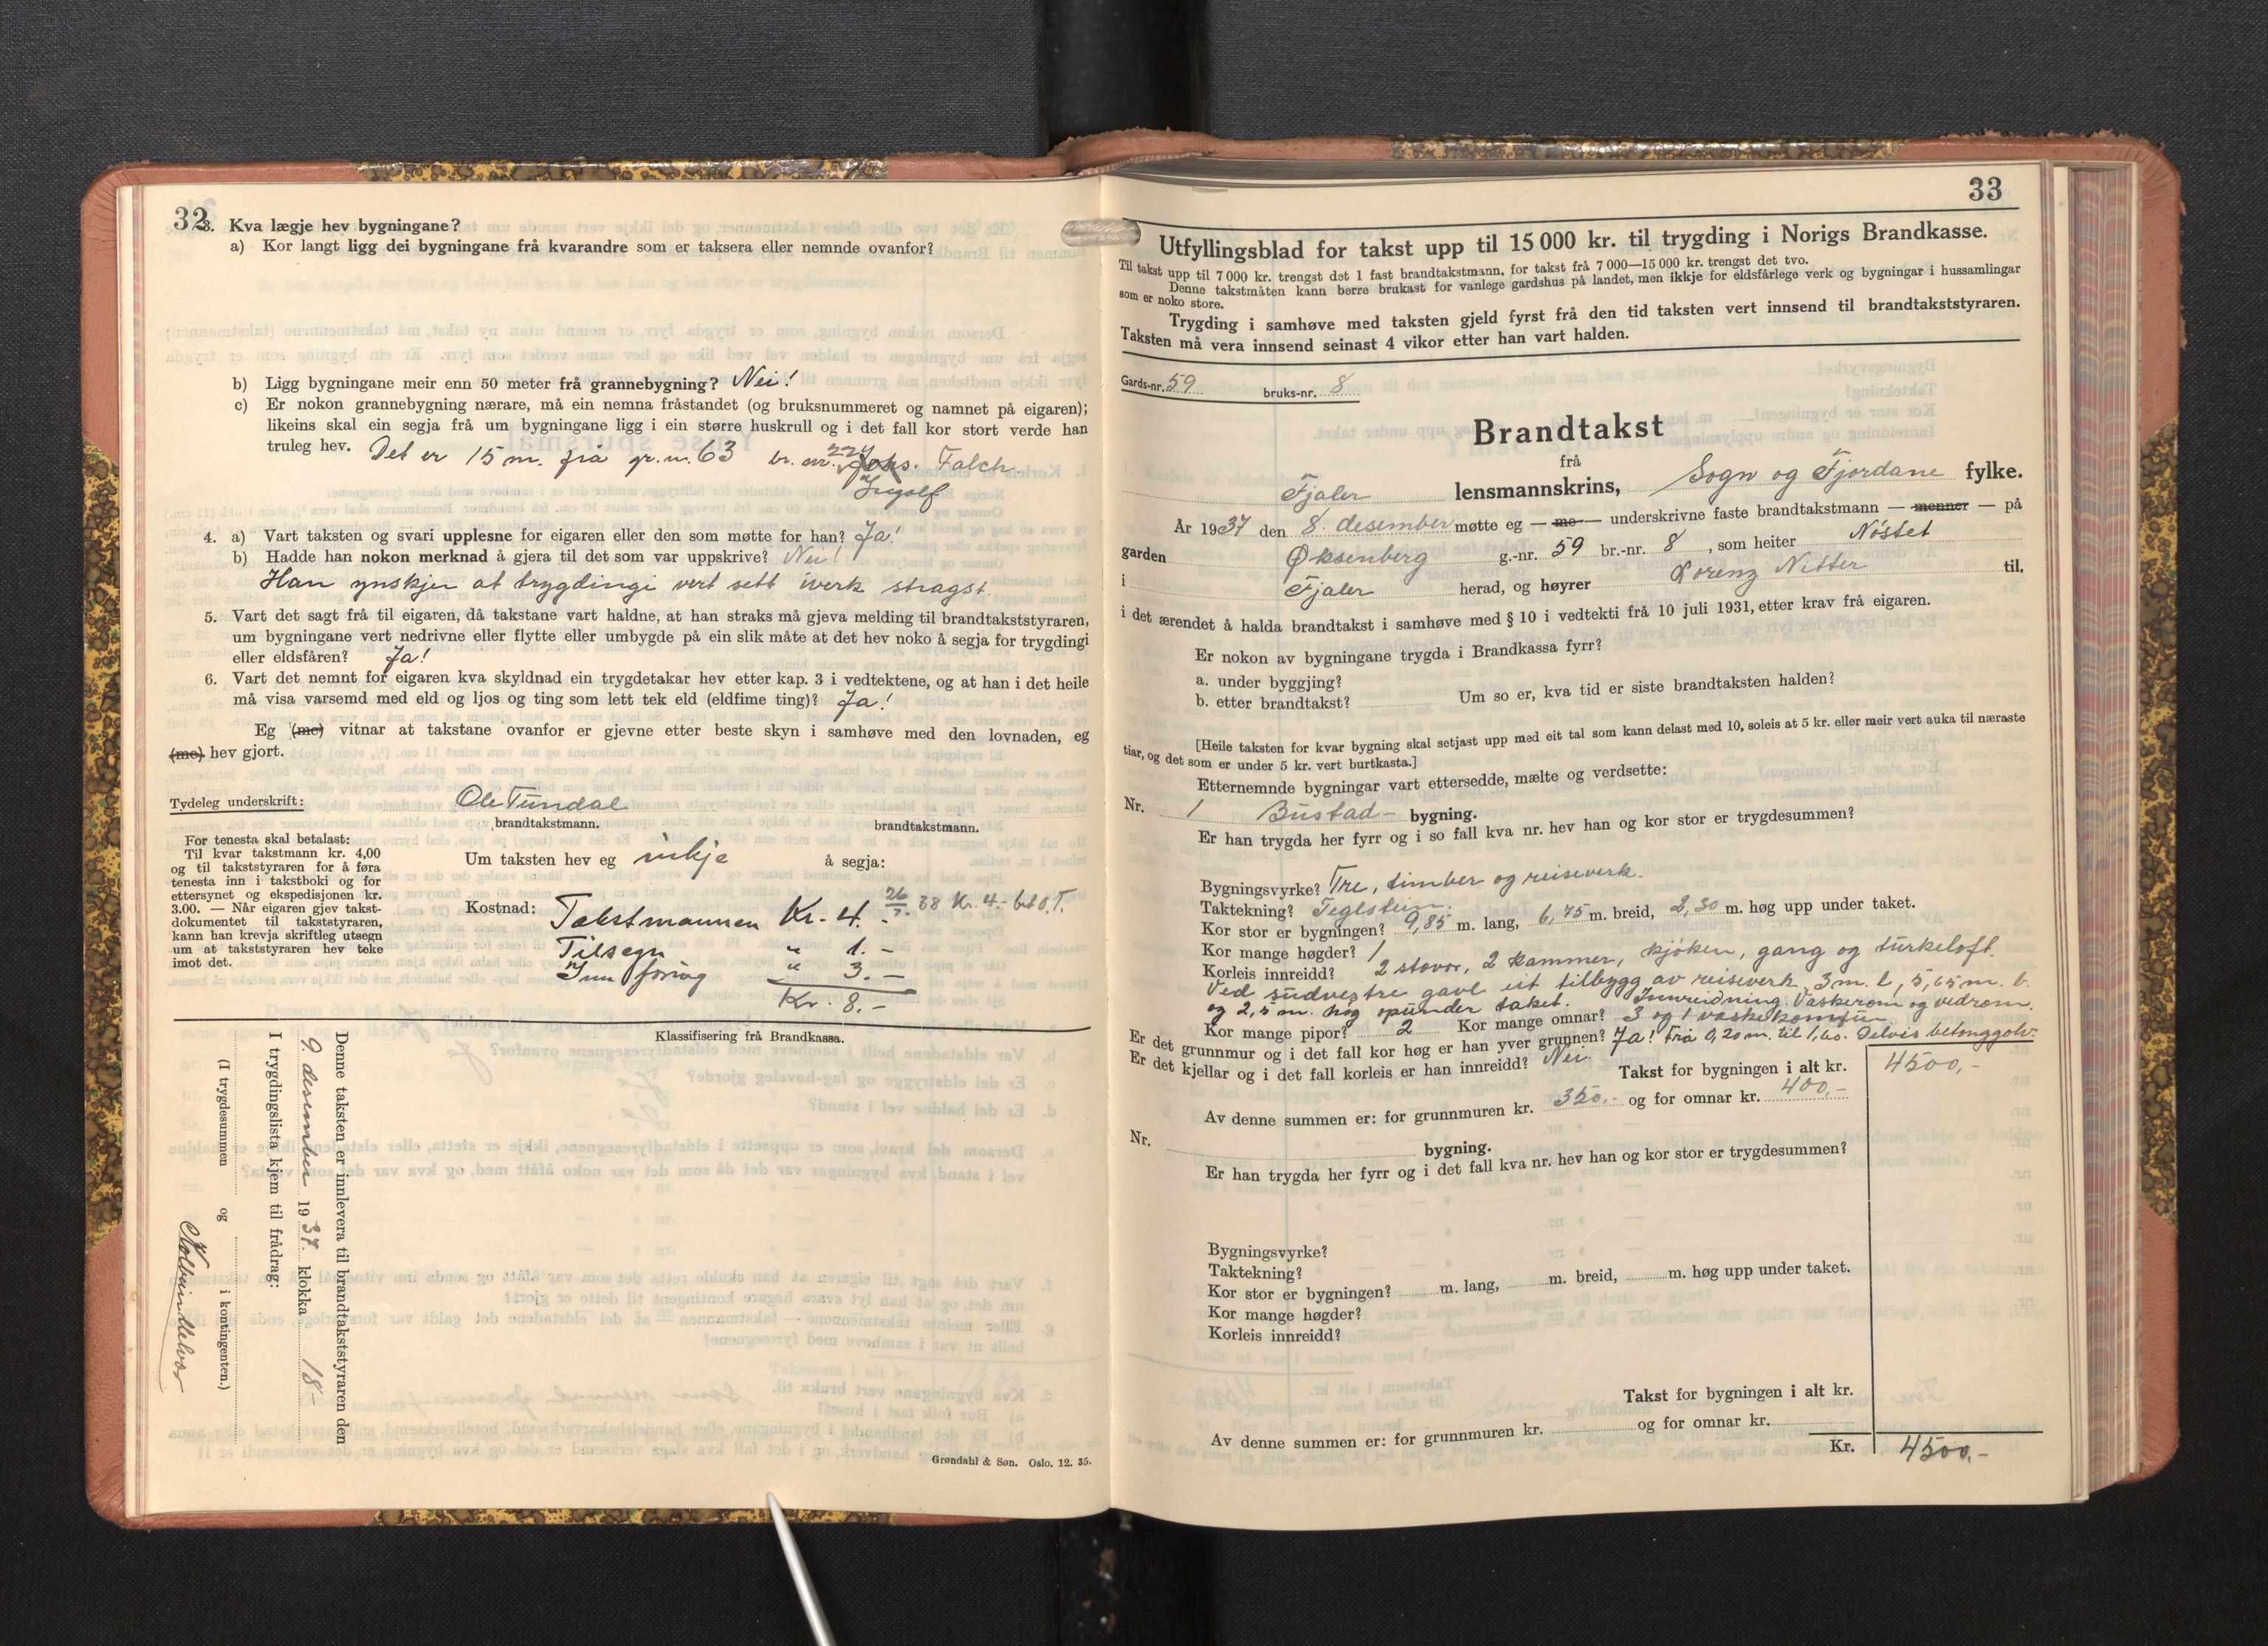 32
3. Kva lægje hev bygningane?
a) Kor langt ligg dei bygningane frå kvarandre som er taksera eller nemnde ovanfor?
b) Ligg bygningane meir enn 50 meter frå grannebygning? Nei!
c) Er nokon grannebygning nærare, må ein nemna fråstandet (og bruksnummeret og namnet på eigaren);
likeins skal ein segja frå um bygningane ligg i ein større huskrull og i det fall kor stort verde han
truleg hev. Det er 15 m. frå gr. nr. 63 br. nr. Johs. Falch
Ingolf
4. a) Vart taksten og svari upplesne for eigaren eller den som møtte for han? Ja!
b) Hadde han nokon merknad å gjera til det som var uppskrive? Nei!
Han ynskjer at trygdingi vert sett iverk stragst.
5. Vart det sagt frå til eigaren, då takstane vart haldne, at han straks må gjeva melding til brandtakststyraren,
um bygningane vert nedrivne eller flytte eller umbygde på ein slik måte at det hev noko å segja for trygdingi
eller eldsfåren? Ja!
6. Vart det nemnt for eigaren kva skyldnad ein trygdetakar hev etter kap. 3 i vedtektene, og at han i det heile
må visa varsemd med eld og ljos og ting som lett tek eld (eldfime ting)? Ja!
Eg (me) vitnar at takstane ovanfor er gjevne etter beste skyn i samhøve med den lovnaden, eg
(me) hev gjort.
Tydeleg underskrift: Ole Tundal
brandtakstmann. brandtakstmann.
For tenesta skal betalast:
Til kvar takstmann kr. 4,00
og til takststyraren for å føra
tenesta inn i takstboki og for
ettersynet og ekspedisjonen kr.
3.00. — Når eigaren gjev takst-
dokumentet til takststyraren,
kann han krevja skriftleg utsegn
um at takststyraren hev teke
imot det.
Um taksten hev eg inkje å segja:
Kostnad: Takstmannen Kr. 4.- 26/7. 38 Kr. 4.- bet O.T.
Tilsegn " 1.-
Innføring " 3.-
Kr. 8.-
Klassifisering frå Brandkassa.
Denne taksten er innlevera til brandtakststyraren den
9. desember 1937. klokka 18-
I trygdingslista kjem til frådrag:
(I trygdesummen og i kontingenten.)
Grøndahl & Søn. Oslo. 12. 35.
33
Utfyllingsblad for takst upp til 15 000 kr. til trygding i Norigs Brandkasse.
Til takst upp til 7 000 kr. trengst det 1 fast brandtakstmann, for takst frå 7 000—15 000 kr. trengst det tvo.
Denne takstmåten kann berre brukast for vanlege gardshus på landet, men ikkje for eldsfårlege verk og bygningar i hussamlingar
som er noko store.
Trygding i samhøve med taksten gjeld fyrst frå den tid taksten vert innsend til brandtakststyraren.
Taksten må vera innsend seinast 4 vikor etter han vart halden.
Gards-nr. 59 bruks-nr. 8
Brandtakst
frå
Fjaler lensmannskrins, Sogn og Fjordane fylke.
År 1937 den 8. desember møtte eg — me — underskrivne faste brandtakstmann — menner — på
garden Øksenberg g.-nr. 59 br.-nr. 8, som heiter Nøstet
i Fjaler herad, og høyrer Lorenz Nitter til,
i det ærendet å halda brandtakst i samhøve med § 10 i vedtekti frå 10 juli 1931, etter krav frå eigaren.
Er nokon av bygningane trygda i Brandkassa fyrr?
a. under byggjing?
b. etter brandtakst? Um so er, kva tid er siste brandtaksten halden?
[Heile taksten for kvar bygning skal setjast upp med eit tal som kann delast med 10, soleis at 5 kr. eller meir vert auka til næraste
tiar, og det som er under 5 kr. vert burtkasta.]
Etternemnde bygningar vart ettersedde, mælte og verdsette:
Nr. 1 Bustad- bygning.
Er han trygda her fyrr og i so fall kva nr. hev han og kor stor er trygdesummen?
Bygningsvyrke? Tre, timber og reiseverk.
Taktekning? Teglstein.
Kor stor er bygningen? 9,85 m. lang, 6,75 m. breid, 2,30 m. høg upp under taket.
Kor mange høgder? 1
Korleis innreidd? 2 stovor, 2 kammer, kjøken, gang og turkeloft.
Ved sudvestre gavl eit tilbygg av reiseverk 3 m. l, 5,65 m. b.
og 2,5 m. høg opunder taket. Innreidning. Vaskerom og vedrom.
Kor mange pipor? 2 Kor mange omnar? 3 og 1 vaskekomfur
Er det grunnmur og i det fall kor høg er han yver grunnen? Ja! Frå 0,20 m. til 1,60. Delvis betonggolv.
Er det kjellar og i det fall korleis er han innreidd? Nei.
Takst for bygningen i alt kr. 4500,-
Av denne summen er: for grunnmuren kr. 350.- og for omnar kr. 400,-
Nr. bygning.
Er han trygda her fyrr og i det fall kva nr. hev han og kor stor er trygdesummen?
Bygningsvyrke?
Taktekning?
Kor stor er bygningen? m. lang, m. breid, m. høg upp under taket.
Kor mange høgder?
Korleis innreidd?
Takst for bygningen i alt kr.
Av denne summen er: for grunnmuren kr. og for omnar kr.
Kr. 4500,-